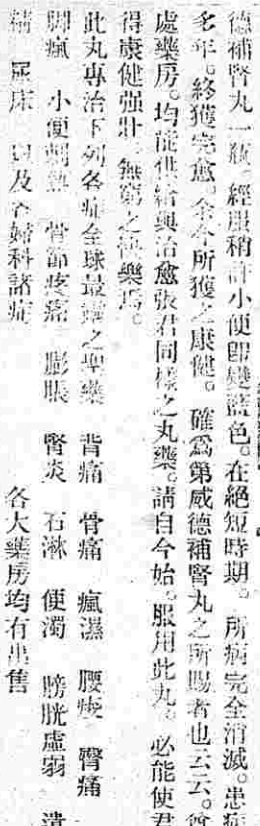 德補腎丸一瓶。經服稍許小便即變藍色。在絕短時期。所病完全消滅。患症
多年。終獲完愈。余今所獲之康健。確為第威德補腎丸之所賜者也云云。
處藥房。均能供給與治愈張君同樣之丸藥。請自今始。服用此丸。必能使君
得康健强壯。無窮之快樂焉。
此丸專治下列各症全球最諦之聖藥 背痛 骨痛 瘋濕 腰痠 腎痛
脚瘋 小便刺熱 骨節疼痛 膨脹 腎炎 石淋 便濁 膀胱虛弱 遺
精 尿床 以及各婦科諸症 各大藥房均有出售